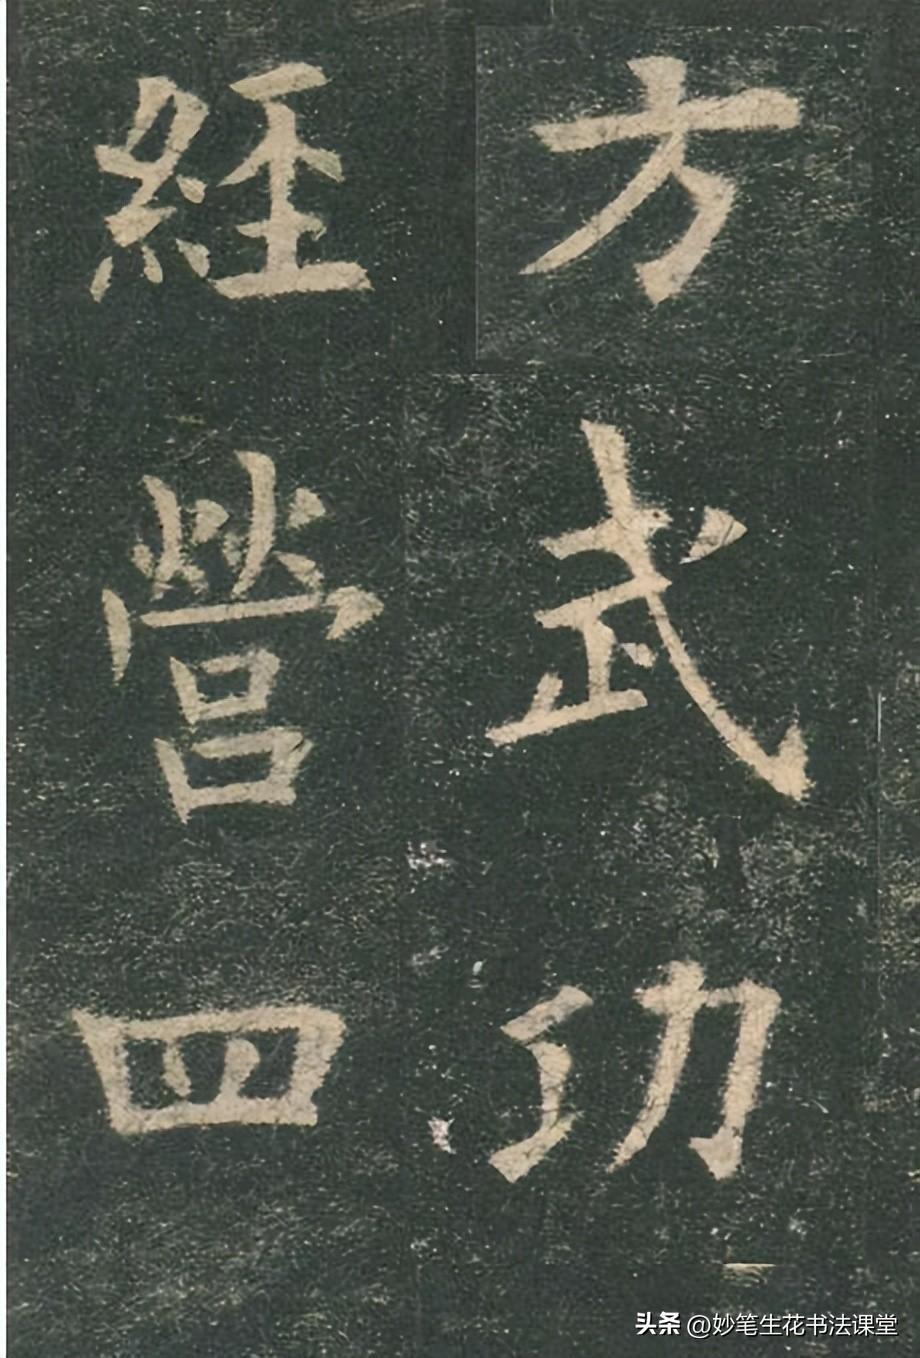 經營四
方武功
头条 @妙笔生花书法课堂